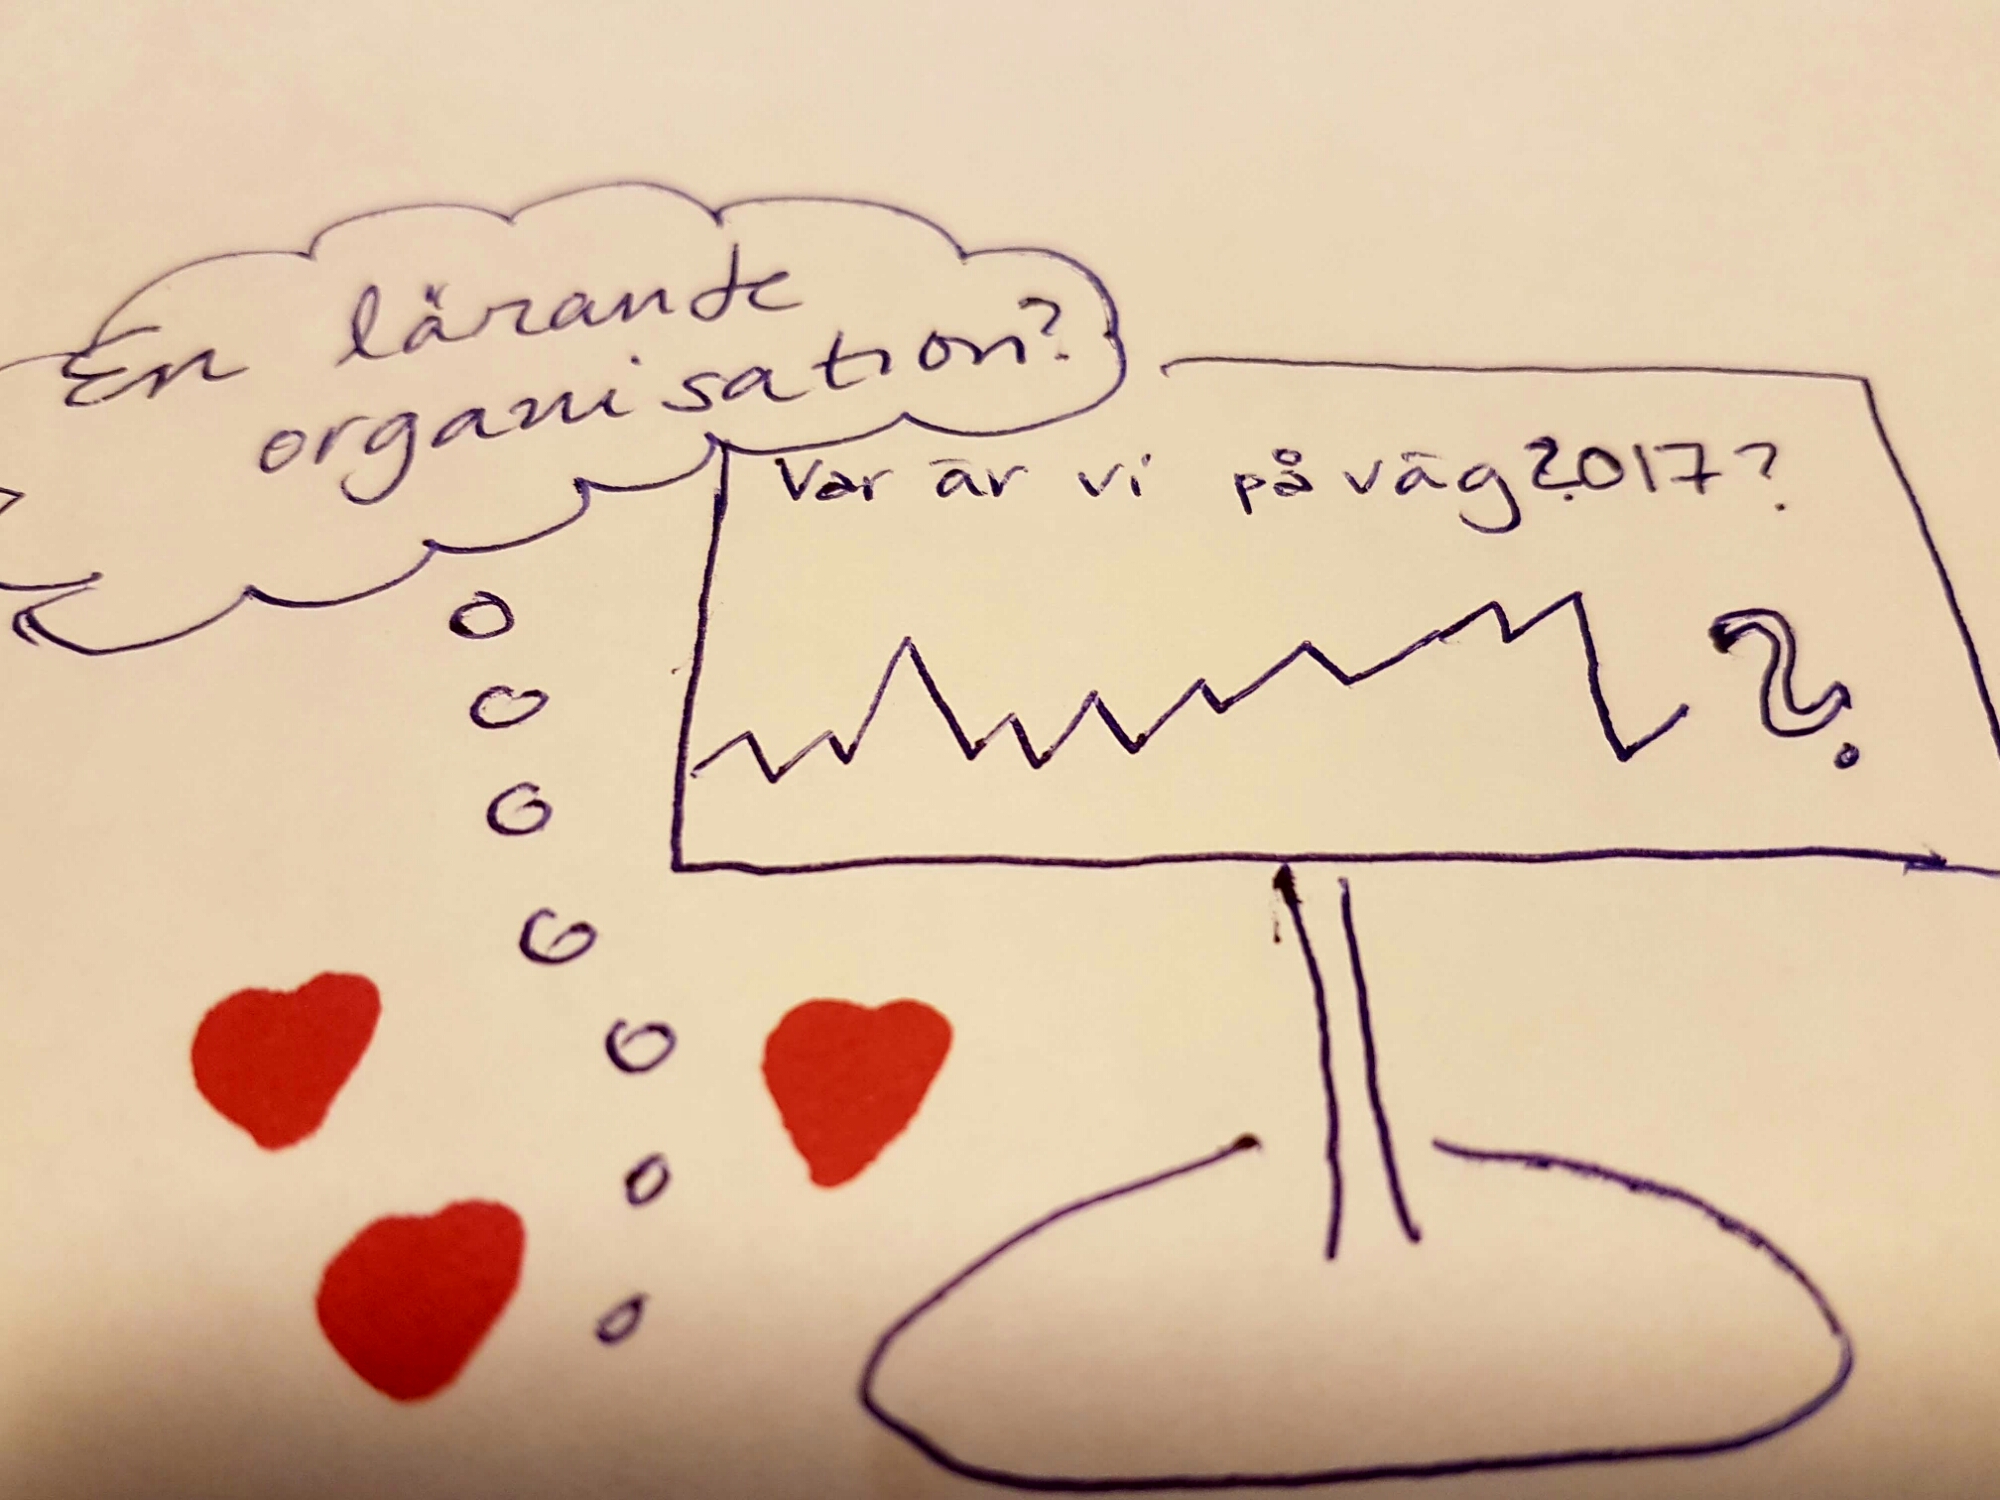 En lärande
organisation?
Var är vi på väg 2017?
?